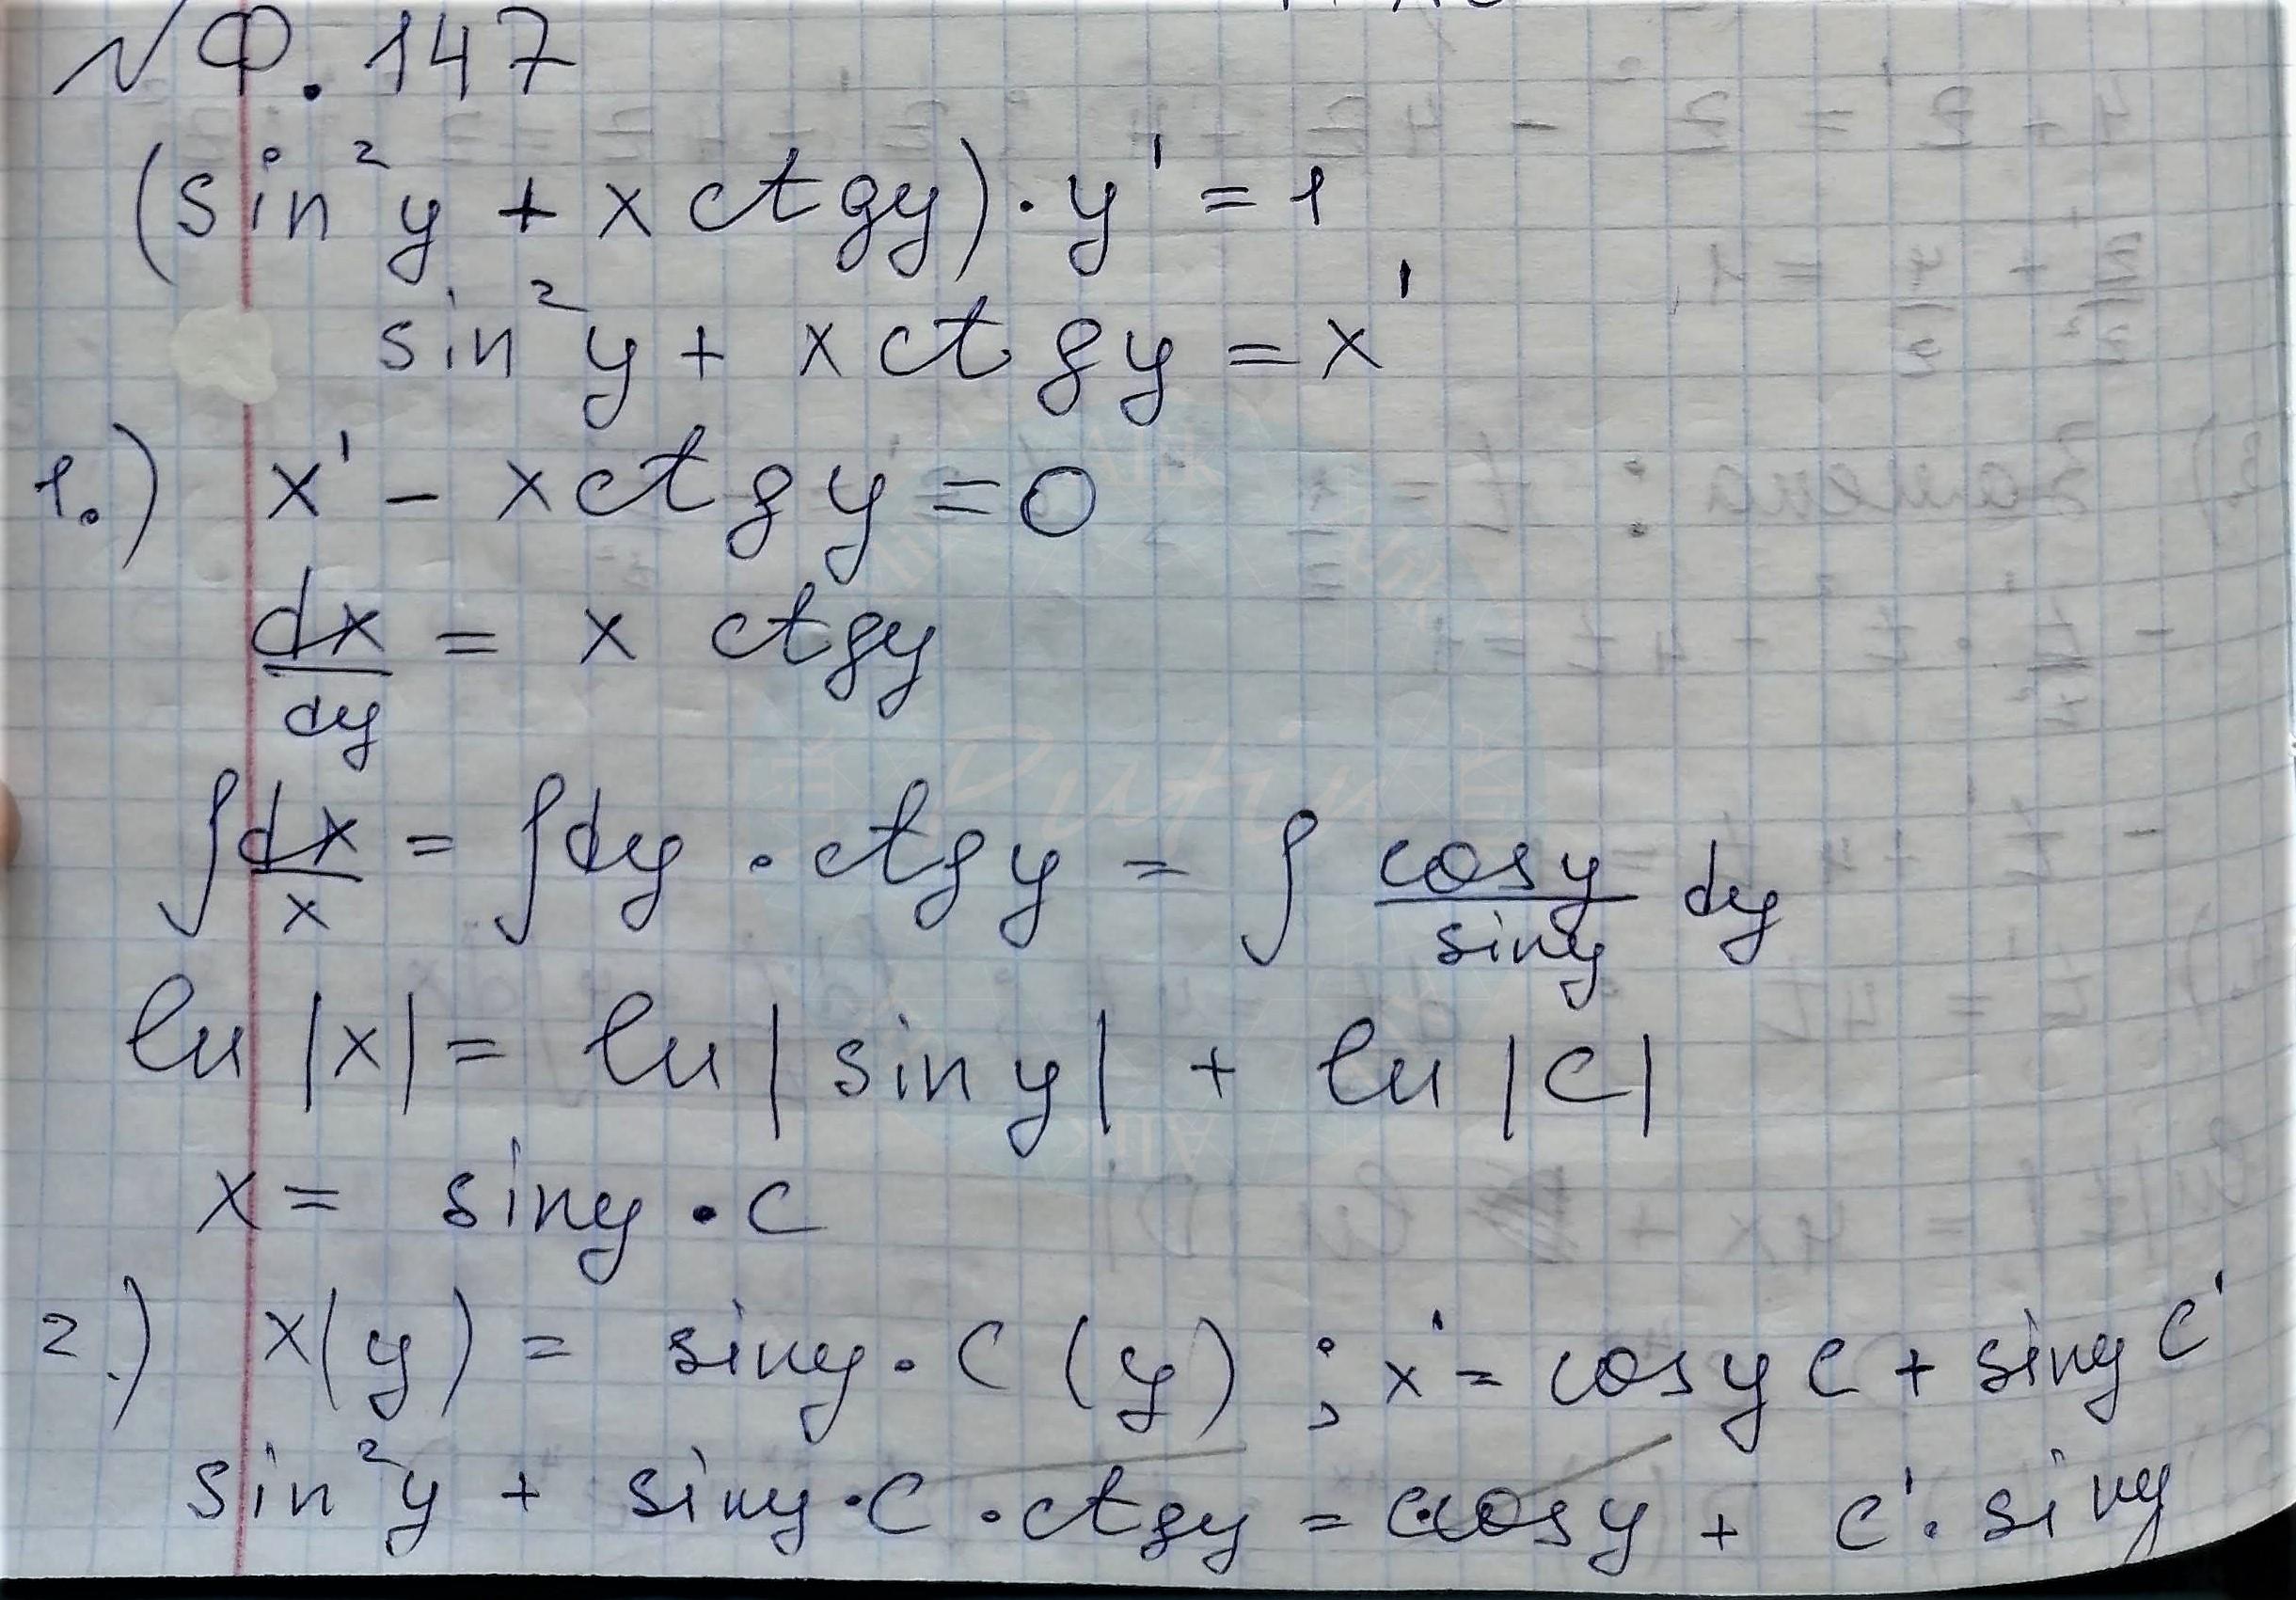 № Ф. 147
(sin²y + x ctgy) · y' = 1
sin²y + x ctgy = x'
1.) x' - x ctgy = 0
dx/dy = x ctgy
∫ dx/x = ∫ dy · ctgy = ∫ cosy/siny dy
ln |x| = ln | sin y | + ln |C|
x = siny · C
2.) x(y) = siny · C (y) ; x' = cosy C + siny C'
sin²y + siny · C · ctgy = C·cosy + C' · siny